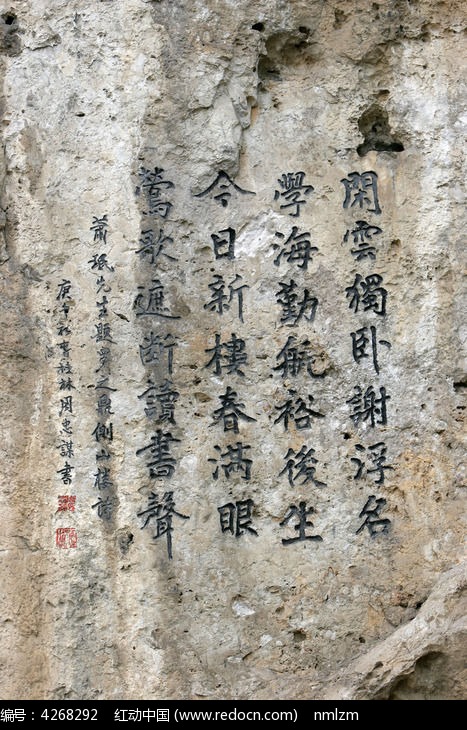 閑雲獨卧謝浮名
學海勤航裕後生
今日新樓春满眼
鶯歌遮断讀書聲
萧珉先生題 之泉側山樓詩
庚 桂林周忠謀書
编号：4268292 红动中国 (www.redocn.com) nmlzm